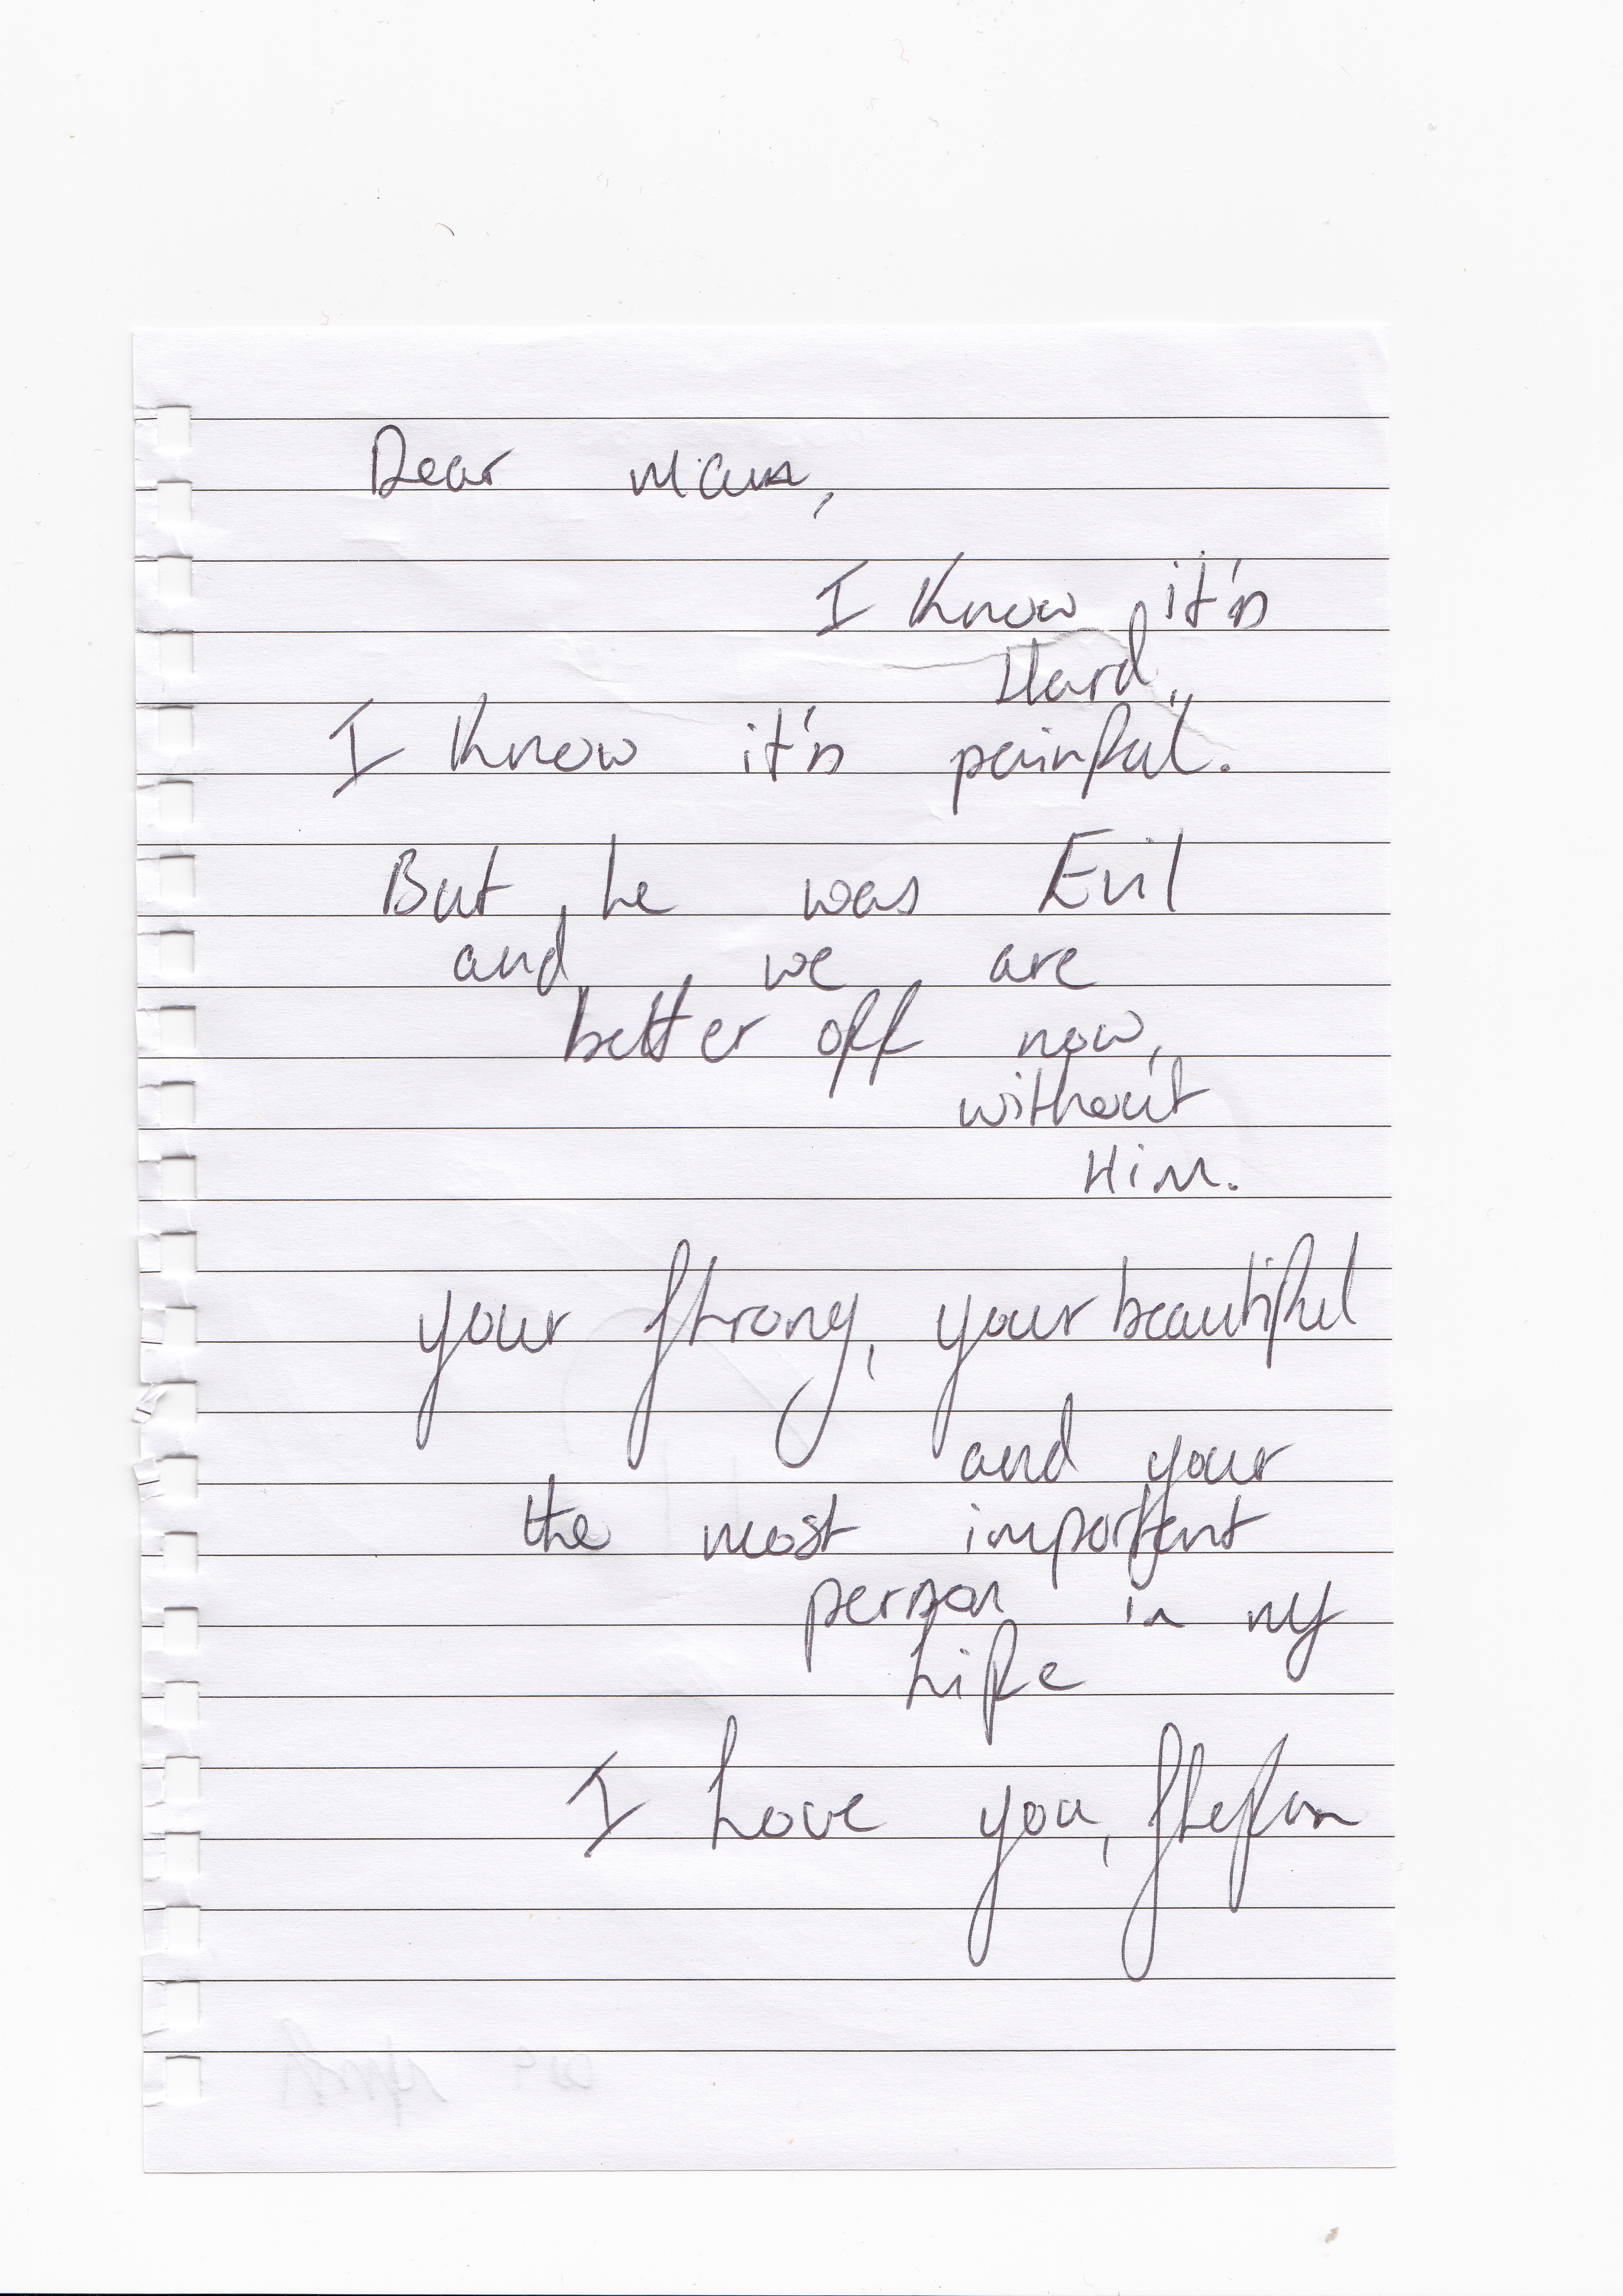 Dear Mam,
I Know it's
Hard,
I Know it's painful.
But he was Evil
and we are
better off now,
without
Him.
your strong, your beautiful
and your
the most important
person in my
Life
I Love you, Stefan